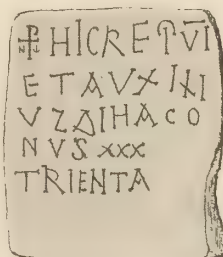 ☧ HIC REꟼVI
ET AVXINI
VZ DIHACO
NVS xxx
TRIENTA